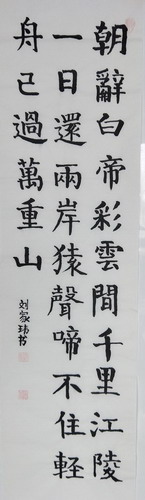 朝辭白帝彩雲間千里江陵
一日還兩岸猿聲啼不住輕
舟已過萬重山
刘家玮书